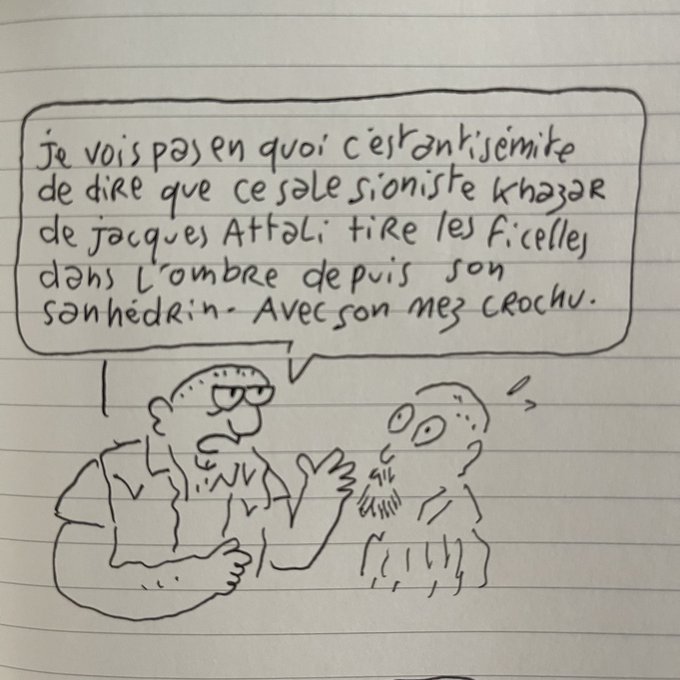 je vois pas en quoi c'est antisémite
de dire que ce sale sioniste khazar
de jacques Attali tire les ficelles
dans l'ombre depuis son
sanhédrin. Avec son nez crochu.